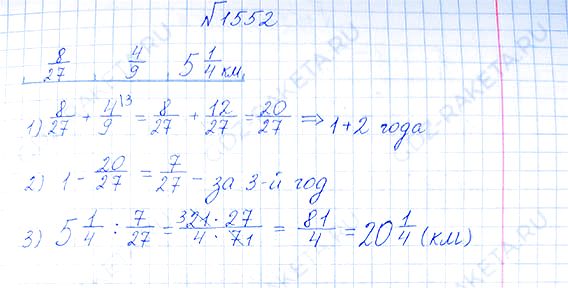 №1552
8/27 4/9 5 1/4 км
1) 8/27 + 4/9 ^(3 = 8/27 + 12/27 = 20/27 ⇒ 1+2 года
2) 1 - 20/27 = 7/27 - за 3-й год
3) 5 1/4 : 7/27 = 3 21 · 27 / 4 · 7 1 = 81/4 = 20 1/4 (км)
GDZ-RAKETA.RU